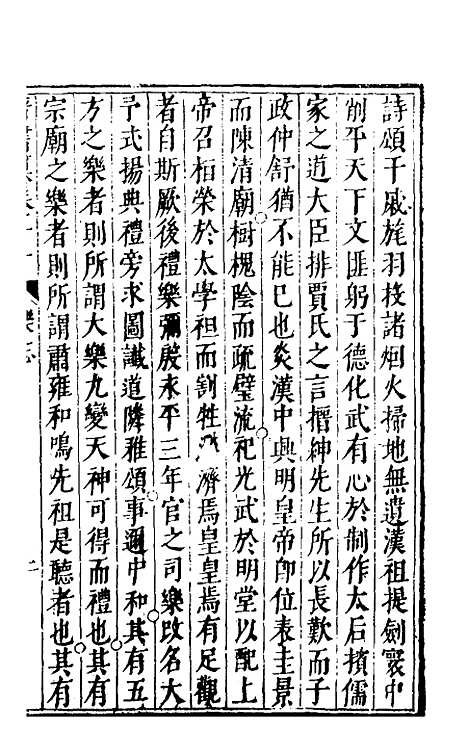 詩頌干戚旄羽投諸煙火掃地無遺漢祖提劍寰中
削平天下文匪躬于德化武有心於制作太后擯儒
家之道大臣排賈氏之言搢紳先生所以長歎而子
政仲舒猶不能已也炎漢中興明皇帝卽位表圭景
而陳清廟樹槐陰而疏璧流祀光武於明堂以配上
帝召桓榮於太學袒而割牲濟濟焉皇皇焉有足觀
者自斯厥後禮樂彌殷永平三年官之司樂改名大
予式揚典禮旁求圖讖道隣雅頌事邇中和其有五
方之樂者則所謂大樂九變天神可得而禮也其有
宗廟之樂者則所謂肅雍和鳴先祖是聽者也其有
樂志
二